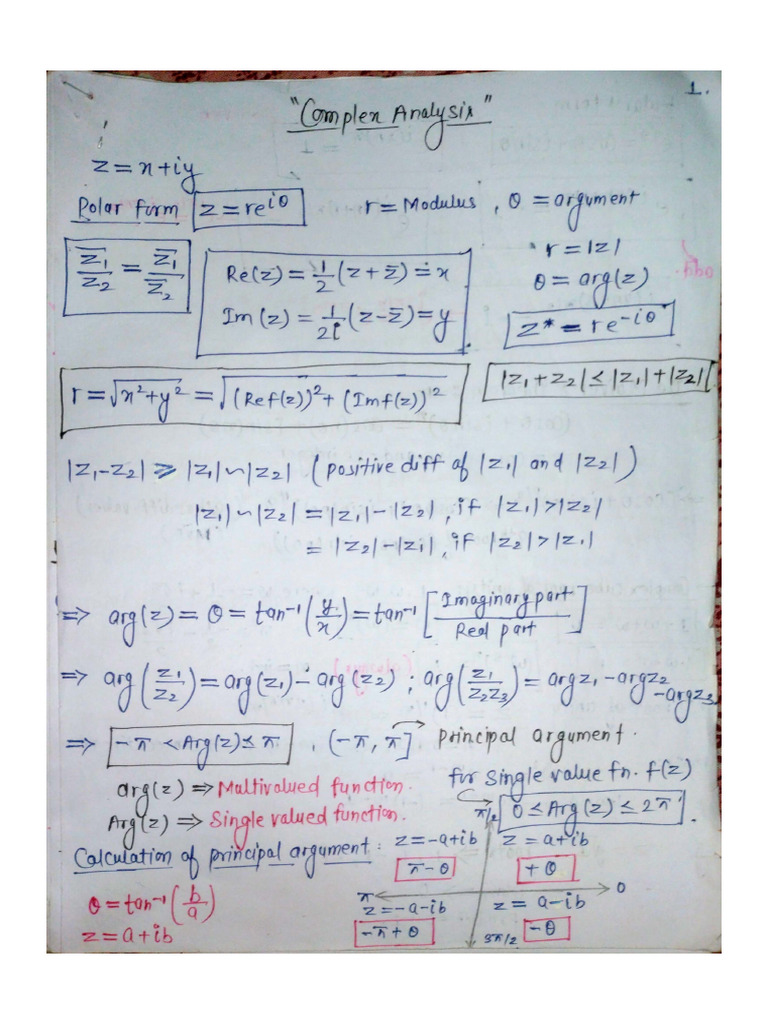 1.
"Complex Analysis"
z = x+iy
Polar form z = re^{iθ} r = Modulus, θ = argument
r = |z|
θ = arg(z)
z* = re^{-iθ}
\overline{z_1}/z_2 = \overline{z_1}/\overline{z}_2
Re(z) = 1/2 (z + z̄) = x
Im(z) = 1/2i (z - z̄) = y
r = √(x²+y²) = √((Ref(z))² + (Imf(z))²)
|z₁+z₂| ≤ |z₁|+|z₂|
|z₁-z₂| ≥ |z₁| ~ |z₂| (positive diff of |z₁| and |z₂|)
|z₁| ~ |z₂| = |z₁| - |z₂|, if |z₁| > |z₂|
= |z₂| - |z₁|, if |z₂| > |z₁|
⇒ arg(z) = θ = tan⁻¹(y/x) = tan⁻¹[Imaginary part / Real part]
⇒ arg(z₁/z₂) = arg(z₁) - arg(z₂) ; arg(z₁/z₂z₃) = argz₁ - argz₂ - argz₃
⇒ -π < Arg(z) ≤ π , (-π, π] → principal argument.
for single value fn. f(z)
0 ≤ Arg(z) ≤ 2π
arg(z) ⇒ Multivalued function.
Arg(z) ⇒ Single valued function.
Calculation of principal argument:
θ = tan⁻¹(b/a)
z = a+ib
π/2
z = -a+ib z = a+ib
π-θ +θ
π 0
z = -a-ib z = a-ib
-π+θ -θ
3π/2